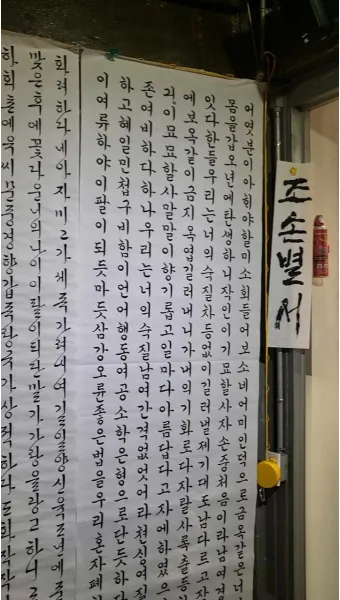 조손별서
어엿분이아희야할미소회들어보소네어미인덕으로금옥갈은너
몸을갑오년에탄생하니작인이기묘할사자손증처음이라남여경
잇다한들우리는너의숙질차등없이길러낼제기대도남다르고장
에보옥같이금지옥엽길러내니가내의기화로다자랄사록출등
기이묘묘할사말말이향기롭고일마다아름답고자에하였으
존여비하다하나우리는너의숙질남여간격없엇어라천성여질
하고혜일민첩구비함이언어행동여공소학은형으로단듯하
이여류하야이팔이되듯마듯삼강오륜좋은법을우리혼자폐
화려하다네아자미그가세족가려하여
꽃은후에꽃다운너의나이이팔이되단말가가랑을
하회촌에육씨문중경향갑족